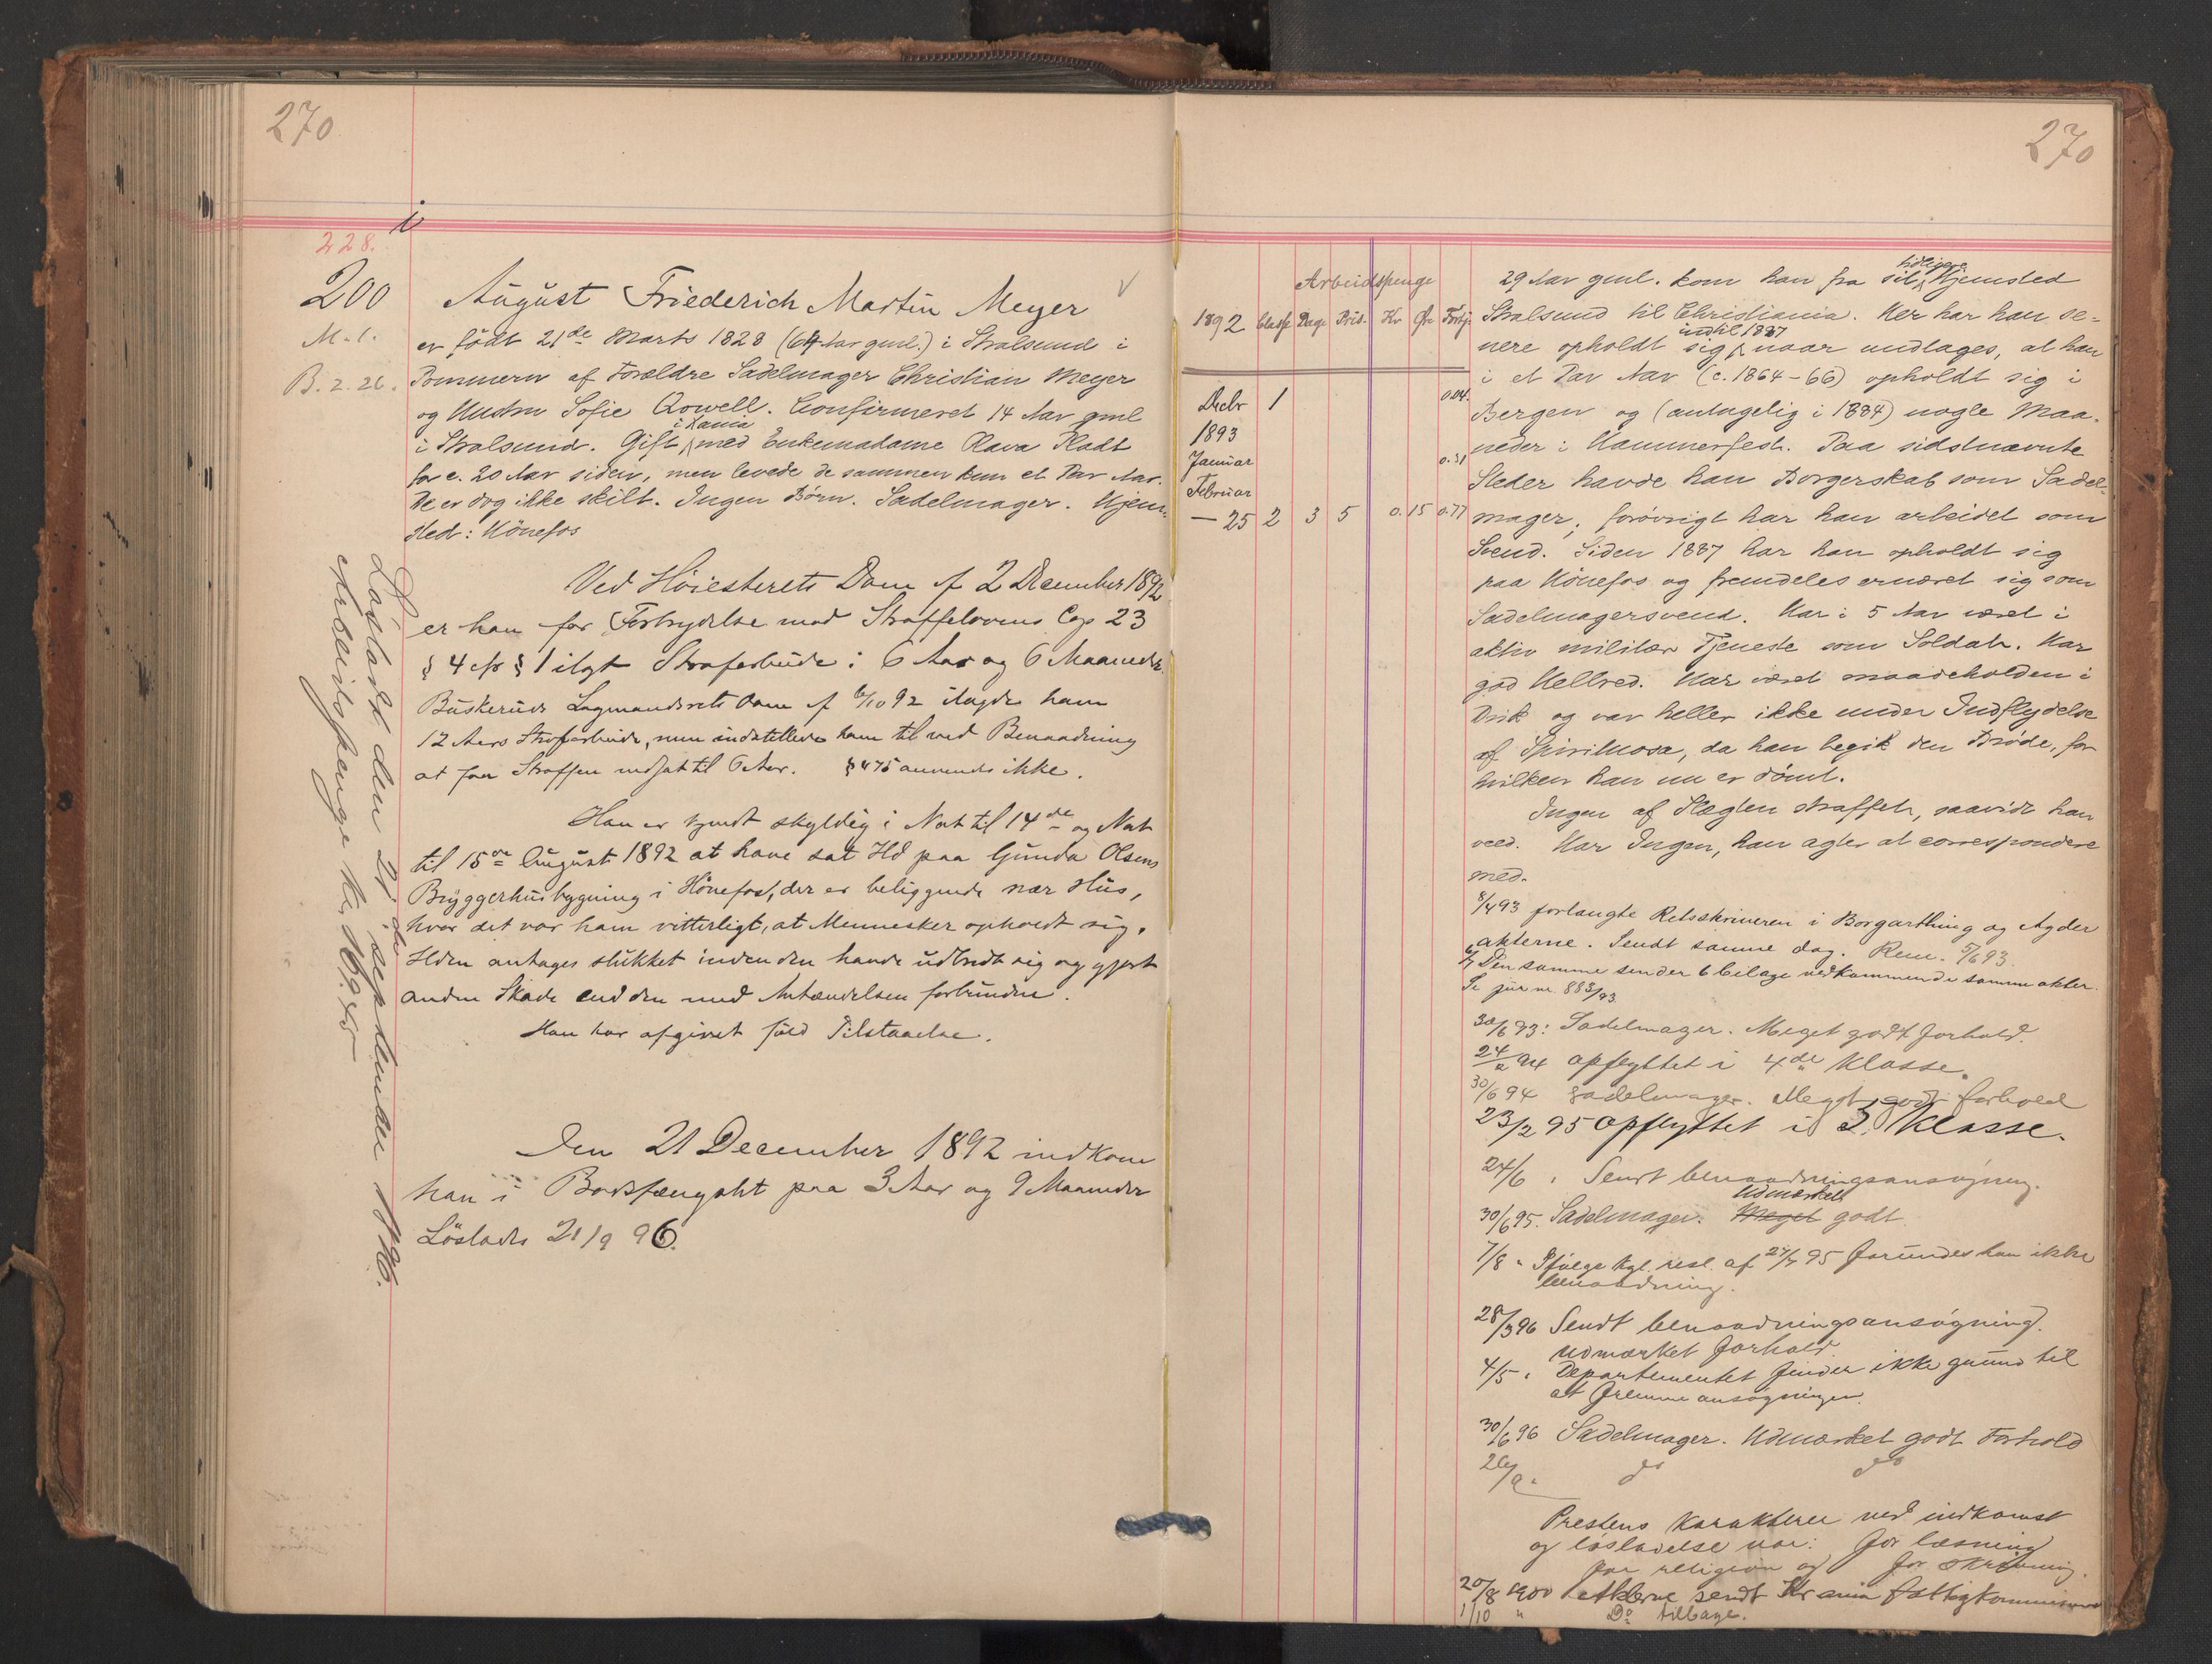 270
i
228.
200
M. 1.
B. 2. 26.
August Friederich Martin Meyer
er født 21de Marts 1828 (64 Aar gml.) i Stralsund i
Pommern af Forældre Sadelmager Christian Meyer
og Hustru Sofie Qowell. Confirmeret 14 Aar gml
i Stralsund. Gift i Xania med Enkemadame Olava Pladt
for c. 20 Aar siden, men levede de sammen kun et Par Aar.
De er dog ikke skilt. Ingen Børn. Sadelmager. Hjem-
sted: Hönefos
Ved Høiesterets Dom af 2 December 1892
er han for Forbrydelse mod Straffelovens Cap 23
§ 4 cfr § 1 ilagt Strafarbeide i 6 Aar og 6 Maaneder.
Buskeruds Lagmandsrets Dom af 6/10 92 ilagde ham
12 Aars Strafarbeide, men indstillede ham til ved Benaadning
at faa Straffen nedsat til 6 Aar. § 475 anvendes ikke.
Han er kjendt skyldig i Nat til 14de og Nat
til 15de August 1892 at have sat Ild paa Gunda Olsens
Bryggerhusbygning i Hönefos, der er beliggende nær Hus,
hvor det var ham vitterligt, at Mennesker opholdt sig.
Ilden antages slukket inden den havde udbredt sig og gjort
anden Skade end den med Antændelsen forbundne.
Han har afgivet fuld Tilstaaelse.
Den 21 December 1892 indkom
han i Bodsfængslet paa 3 Aar og 9 Maaneder
Löslades 21/9 96.
Lösladt den 21de september 1896.
Arbeidspenge kr.
270
Arbeidspenge
1892 Classe Dage Præs. Kr Øre Fortj.
Decbr 1 0.04.
1893
Januar 0.31
Februar
— 25 2 3 5 0.15 0.77
29 Aar gml. kom han fra sit tidligere Hjemsted
Stralsund til Christiania. Her har han se-
nere opholdt sig indtil 1887 naar undtages, at han
i et Par Aar (c. 1864-66) opholdt sig i
Bergen og (antagelig i 1884) nogle Maa-
neder i Hammerfest. Paa sidstnævnte
Steder havde han Borgerskab som Sadel-
mager, forøvrigt har han arbeidet som
Svend. Siden 1887 har han opholdt sig
paa Hönefos og fremdeles ernæret sig som
Sadelmagersvend. Har i 5 Aar været i
aktiv militær Tjeneste som Soldat. Har
god Helbred. Har været maadeholden i
Drik og var heller ikke under Indflydelse
af Spirituosa, da han begik den Brøde, for
hvilken han nu er dömt.
Ingen af Slægten straffet, saavidt han
veed. Har Ingen, han agter at correspondere
med.
8/4 93 forlangte Retsskriveren i Borgarthing og Agder
akterne. Sendt samme dag. Rem. 5/6 93.
6/7 Den samme sender 6 bilage vedkommende samme akter.
Se jur nr. 883/93
30/6 93: Sadelmager. Meget godt forhold.
24/2 94 opflyttet i 4de Klasse.
30/6 94 Sadelmager. Meget godt forhold
23/2 95 opflyttet i 3. Klasse.
24/6 " Sendt benaadningsansøgning.
30/6 95. Sadelmager. Meget Udmærket godt
7/8 " Ifølge kgl. resl. af 27/7 95 forundes han ikke
benaadning.
28/3 96 Sendt benaadningsansøgning.
Udmærket forhold.
4/5 " Departementet finder ikke grund til
at fremme ansøgningen.
30/6 96 Sadelmager. Udmærket godt Forhold
do do
Prestens karakterer ved indkomst
og løsladelse var: for læsning
for religion og for skrivning.
20/8 1900 Akterne sendt Kr ania fattigkommission
1/10 " Do tilbage.